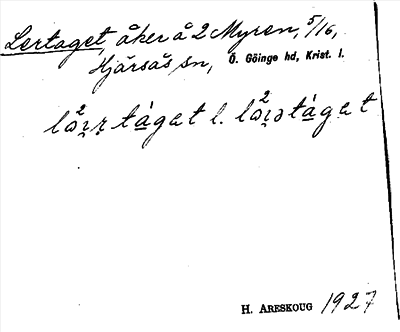 Lertaget, åker å 2 Myren, 5/16,
Hjärsås sn, Ö. Göinge hd, Krist. l.
lə²ı̣ṛ táget l. lə²ı̣ə táget
H. ARESKOUG 1927